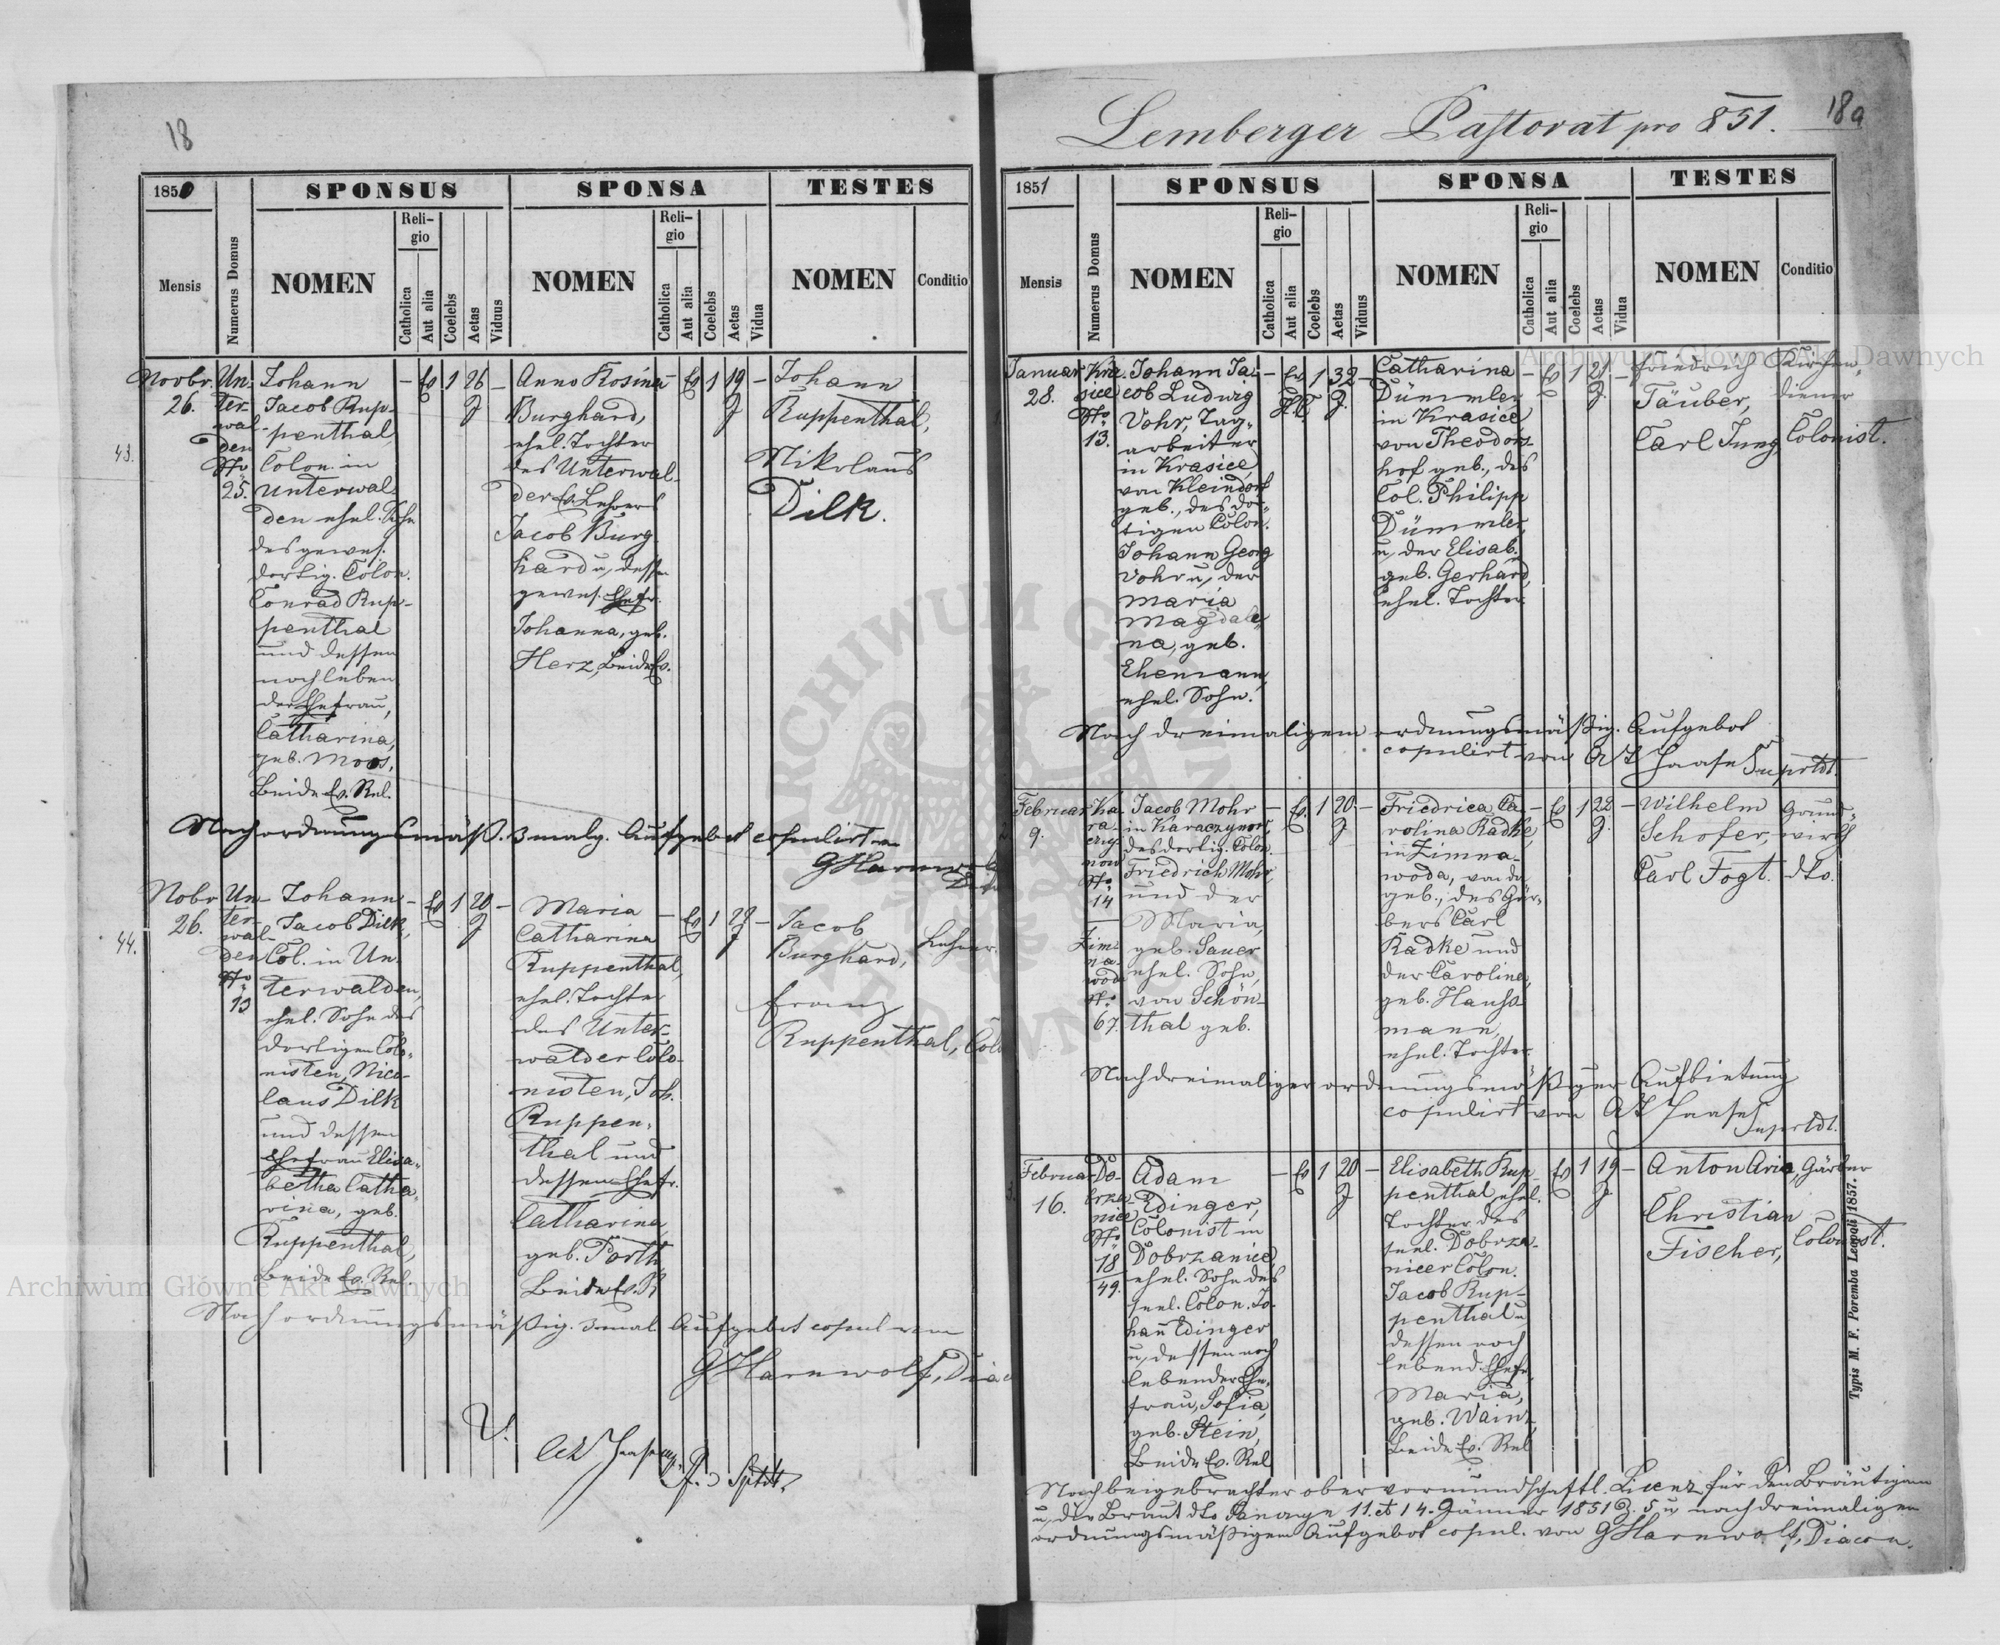 18
1850
SPONSUS
SPONSA
TESTES
Mensis
Numerus Domus
NOMEN
Religio
Catholica
Aut alia
Coelebs
Aetas
Viduus
NOMEN
Religio
Catholica
Aut alia
Coelebs
Aetas
Vidua
NOMEN
Conditio
43.
Novbr.
26.
Un-
ter-
wal-
den
No
25.
Johann
Jacob Rup-
penthal,
Colon. in
Unterwal-
den ehel. Sohn
des gewes.
dortig. Colon.
Conrad Rup-
penthal
und dessen
noch leben
der Ehefrau,
Catharina,
geb. Moos,
Beide Ev. Rel.
– Ev 1 26 –
J
Anna Rosina
Burghard,
ehel. Tochter
des Unterwal-
der Ev. Lehrers
Jacob Burg
hard u, dessen
gewes. Ehefr.
Johanna, geb.
Herz, Beide Ev.
– Ev 1 19 –
J
Johann
Ruppenthal,
Nikolaus
Dilk.
Nach ordnungsmäß. 3malg. Aufgebot copulirt von
GHarnwolf
44.
Nobr
26.
Un-
ter-
wal-
den
No
13
Johann
Jacob Dilk,
Col. in Un-
terwalden,
ehel. Sohn des
dortigen Colo-
nisten, Nico-
laus Dilk
und dessen
Ehefrau Elisa-
betha Catha-
rina, geb.
Ruppenthal,
Beide Ev. Rel.
– Ev 1 20 –
J
Maria
Catharina
Ruppenthal,
ehel. Tochter
des Unter-
walder Colo-
nisten, Joh.
Ruppen-
thal und
dessen Ehefr.
Catharina,
geb. Porth,
Beide Ev. R
– Ev 1 –
J
Jacob
Burghard, Lehrer.
Franz
Ruppenthal, Colo
Nach ordnungsmäßig. 3mal Aufgebot copul von
GHarnwolf, Diac
Haase
Lemberger Pastorat pro 851.
18a
1851
SPONSUS
SPONSA
TESTES
Mensis
Numerus Domus
NOMEN
Religio
Catholica
Aut alia
Coelebs
Aetas
Viduus
NOMEN
Religio
Catholica
Aut alia
Coelebs
Aetas
Vidua
NOMEN
Conditio
1.
Januar
28.
Kra
sice
No
13.
Johann Ja-
cob Ludwig
Vohr, Tag-
arbeiter
in Krasice,
von Kleindorf
geb., des dor-
tigen Colon.
Johann Georg
Vohr u, der
Maria
Magdale-
na, geb.
Ehemann,
ehel. Sohn.
– Ev 1 32 –
H.C. J.
Catharina
Dümmler
in Krasice
von Theodors-
hof geb., des
Col. Philipp
Dümmler,
u, der Elisab.
geb. Gerhard,
ehel. Tochter.
– Ev 1 21 –
J.
Friedrich Kirchen-
Täuber, diener
Carl Jung Colonist.
Nach dreimaligem ordnungsmäßig. Aufgebot
copulirt von Haase Suprtdt.
2.
Februar
9.
Ka
ra-
czy-
now
No
14
Zim-
na
woda
No
67.
Jacob Mohr
in Karaczynow,
des dortig. Colon.
Friedrich Mohr,
und der
Maria,
geb. Sauer
ehel. Sohn,
von Schön-
thal geb.
– Ev. 1 20. –
J
Friedrica Ca-
rolina Radke,
in Zimna-
woda, von da
geb., des Gär-
bers Carl
Radke und
der Carolina,
geb. Hauss
mann,
ehel. Tochter.
– Ev 1 22. –
J.
Wilhelm Grund-
Schofer, wirth
Carl Fogt. dto.
Nach dreimaliger ordnungsmäßiger Aufbietung
copulirt von Haase Suprtdt.
3.
Februar
16.
Do-
brza-
nice
No
18
49.
Adam
Edinger,
Colonist in
Dobrzanice,
ehel. Sohn des
seel. Colon. Jo-
hann Edinger
u, dessen noch
lebender Ehe-
frau, Sofia,
geb. Stein,
Beide Ev. Rel
– Ev 1 20 –
J
Elisabeth Rup-
penthal, ehel.
Tochter des
seel. Dobrza-
nicer Colon.
Jacob Rup-
penthal u,
dessen noch
lebend. Ehefr.
Maria,
geb. Wainz,
Beide Ev. Rel
Ev 1 19 –
J
Anton Aria, Gärber
Christian
Fischer, Colonist.
Nach beigebrachter obervormundschaftl. Licenz für den Bräutigam
u, die Braut dto 11. et 14. Jänner 1851 Z. 5 u nach dreimaligem
ordnungsmäßigem Aufgebot copul. von GHarnwolf, Diacon.
Typis M. F. Poremba Leopoli 1857.
Archiwum Główne Akt Dawnych
Archiwum Główne Akt Dawnych
ARCHIWUM GŁÓWNE AKT DAWNYCH